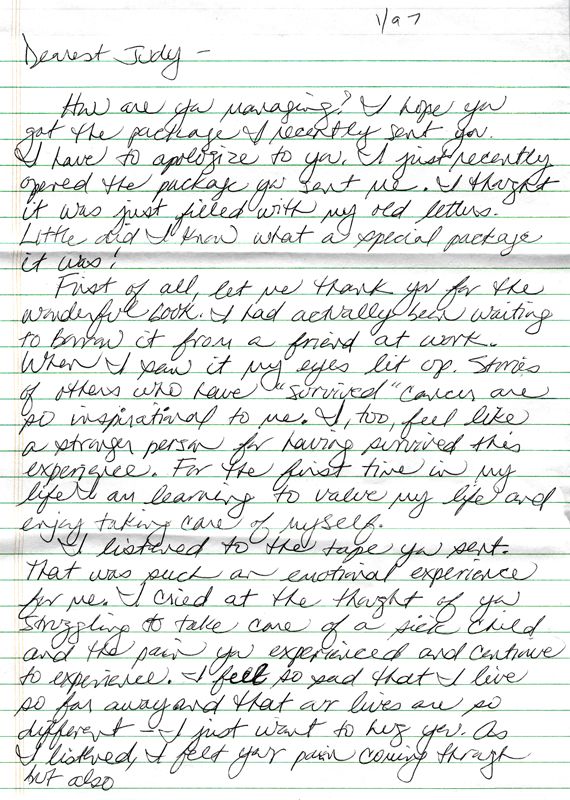 1/97
Dearest Judy -
How are you managing? I hope you
got the package I recently sent you.
I have to apologize to you. I just recently
opened the package you sent me. I thought
it was just filled with my old letters.
Little did I know what a special package
it was!
First of all, let me thank you for the
wonderful book. I had actually been waiting
to borrow it from a friend at work.
When I saw it my eyes lit up. Stories
of others who have "survived" cancer are
so inspirational to me. I, too, feel like
a stronger person for having survived this
experience. For the first time in my
life I am learning to value my life and
enjoy taking care of myself.
I listened to the tape you sent.
That was such an emotional experience
for me. I cried at the thought of you
struggling to take care of a sick child
and the pain you experienced and continue
to experience. I feel so sad that I live
so far away and that our lives are so
different - I just want to hug you. As
I listened, I felt your pain coming through
but also